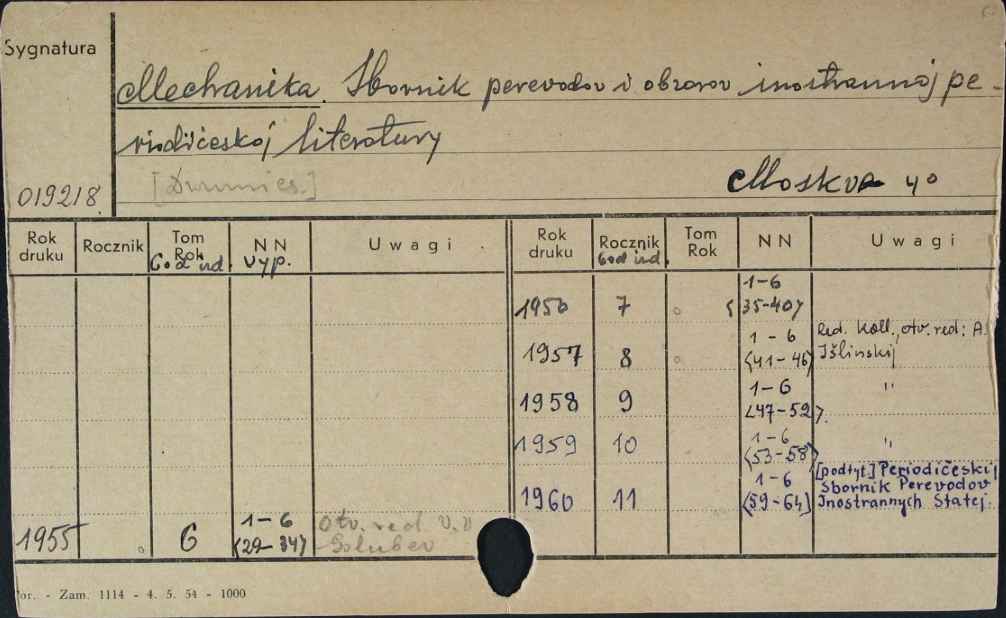 Sygnatura
Mechanika. Sbornik perevodov i obzorov inostrannoj pe-
riodičeskoj literatury
019218.
Moskva 4°
Rok druku Rocznik Tom Rok God izd. NN vyp. Uwagi
Rok druku Rocznik God izd. Tom Rok NN Uwagi
1955 6 1-6 (29-34) Otv. red. V. V. Golubev
1956 7 1-6 (35-40)
1957 8 1-6 (41-46) Red. Koll., otv. red: A. Išlinskij
1958 9 1-6 (47-52). "
1959 10 1-6 (53-58) "
1960 11 1-6 (59-64) [podtyt] Periodičeskij Sbornik Perevodov Inostrannych Statej.
- Zam. 1114 - 4. 5. 54 - 1000